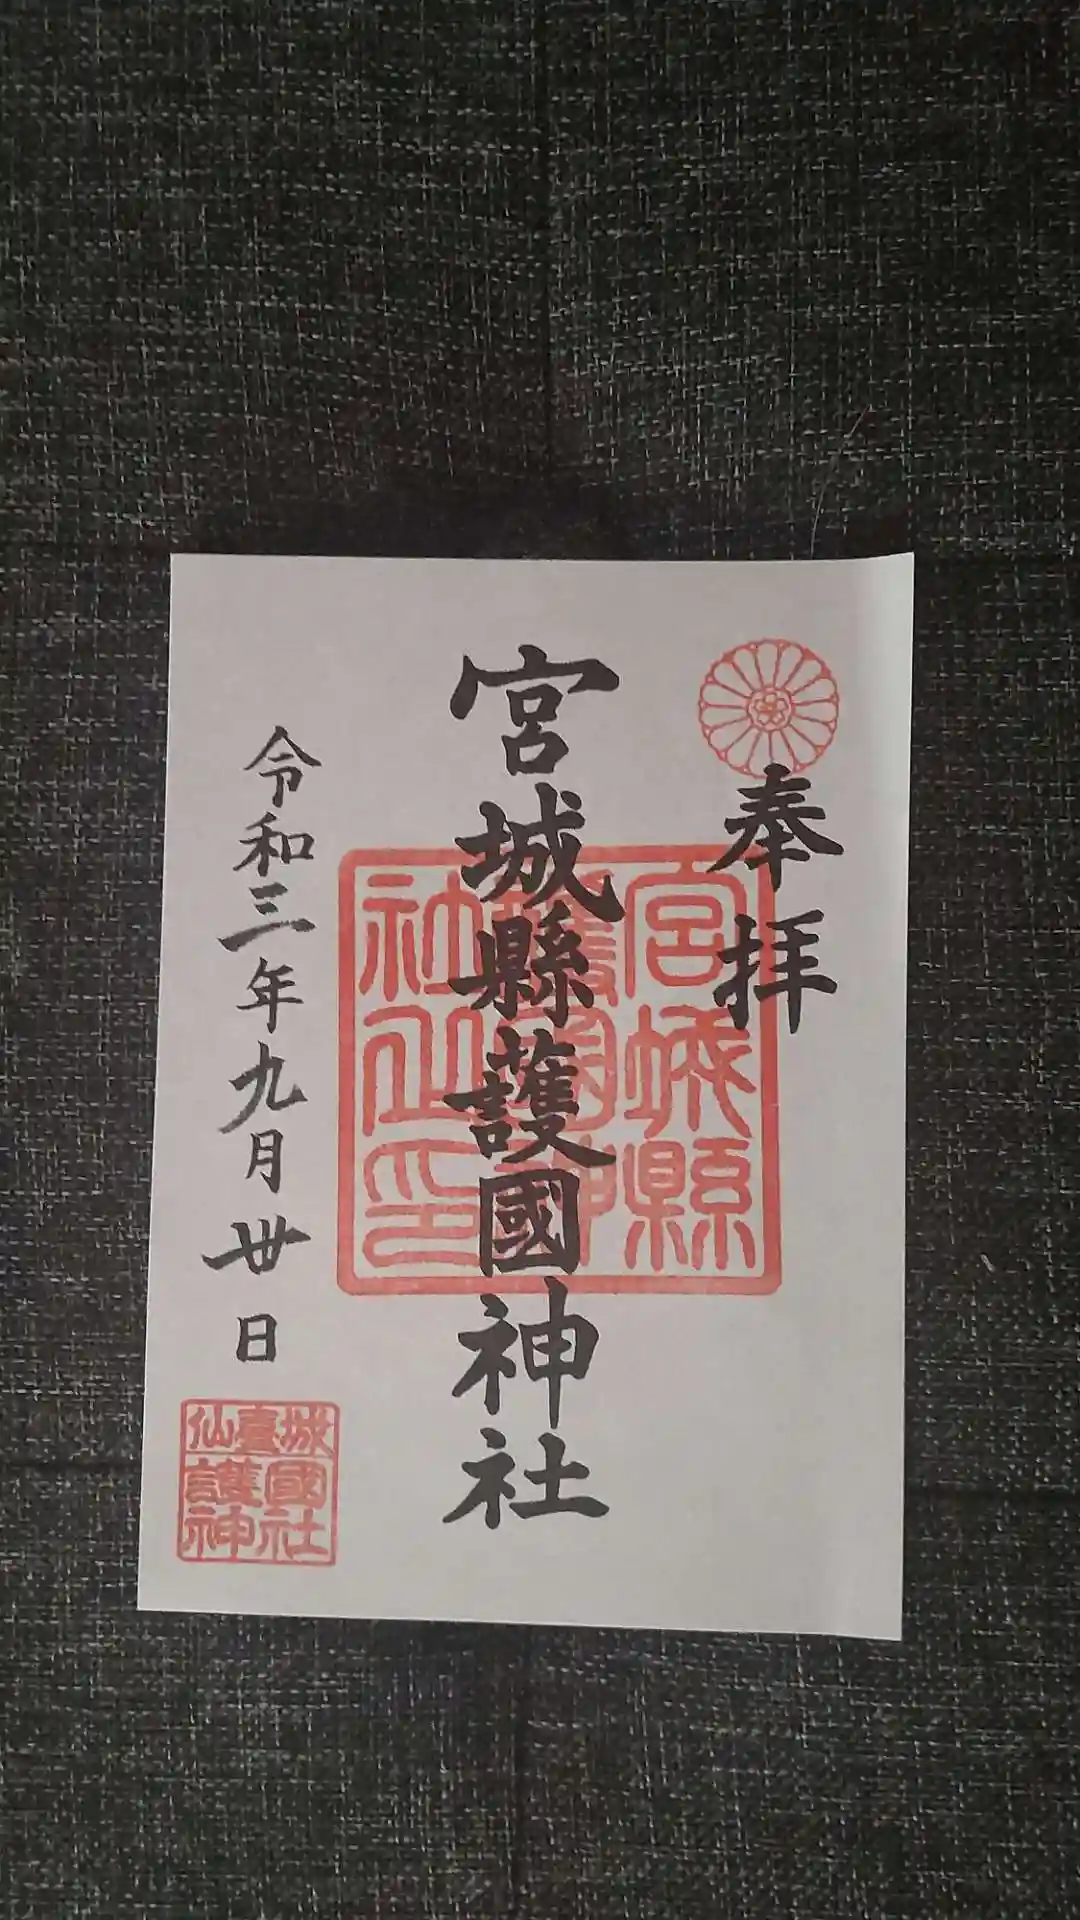 奉拝
宮城縣護國神社
宮城縣
護國神
社之印
令和三年九月丗日
仙臺城
護國
神社